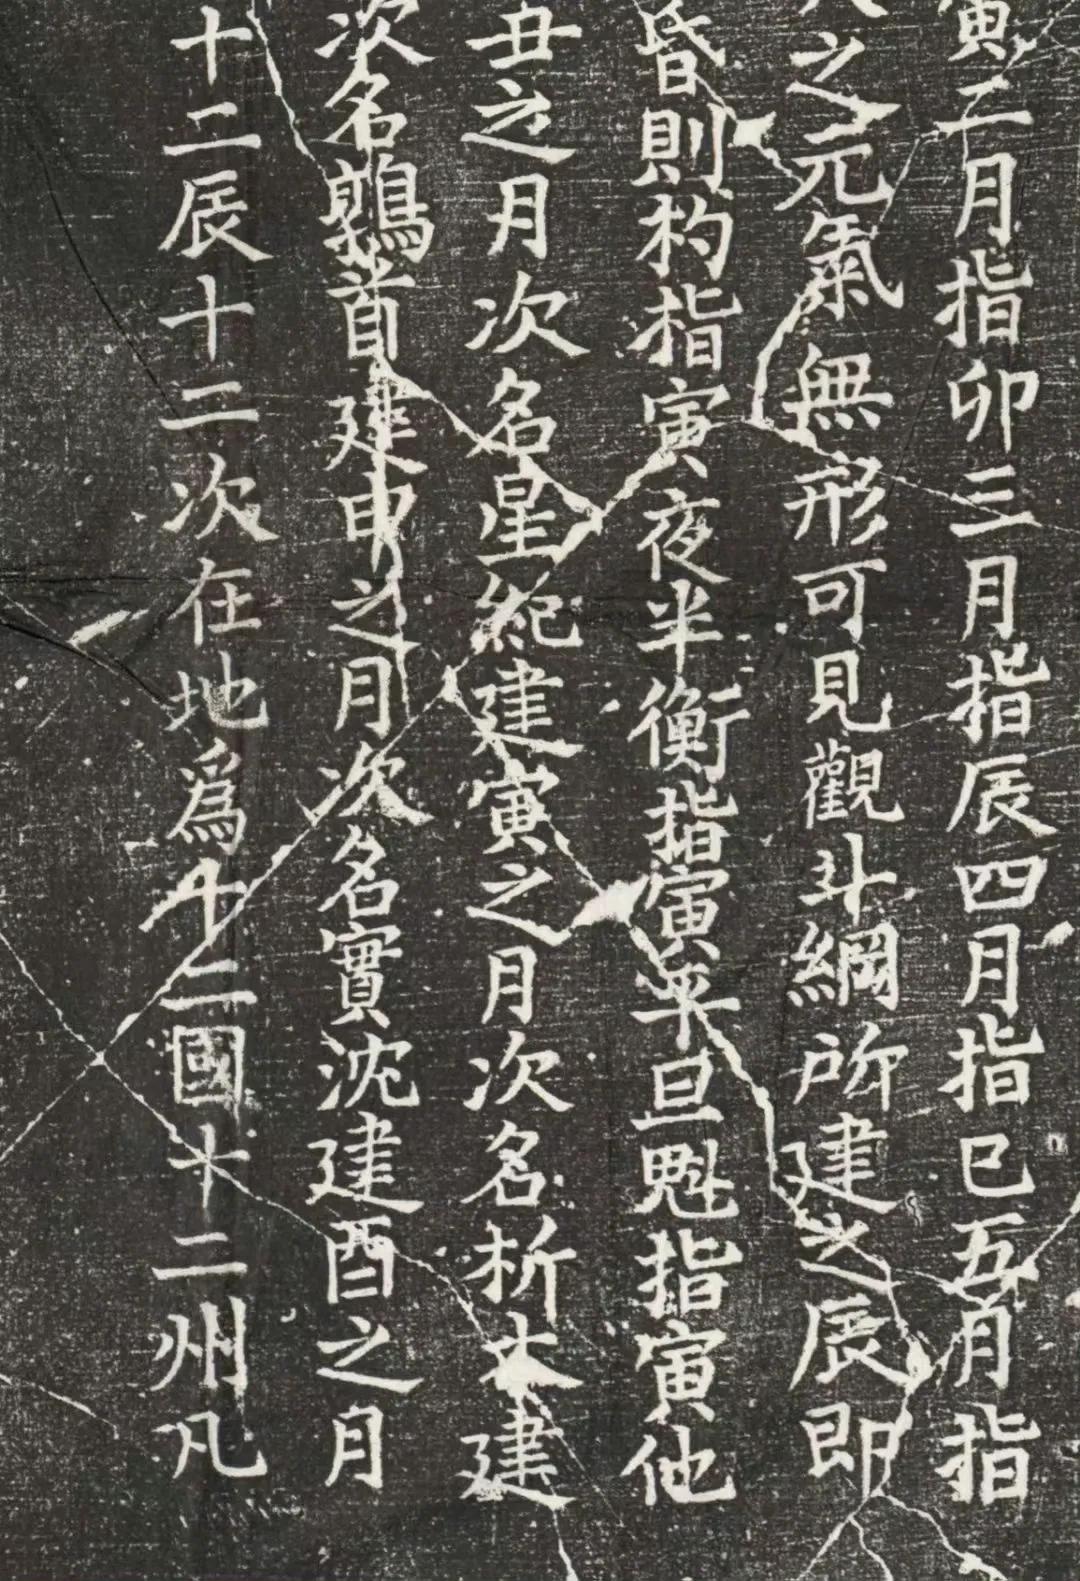 寅二月指卯三月指辰四月指巳五月指
之元氣無形可見觀斗綱所建之辰即
昏則杓指寅夜半衡指寅平旦魁指寅他
丑之月次名星紀建寅之月次名析木建
次名鶉首建申之月次名實沈建酉之月
十二辰十二次在地爲十二國十二州凡